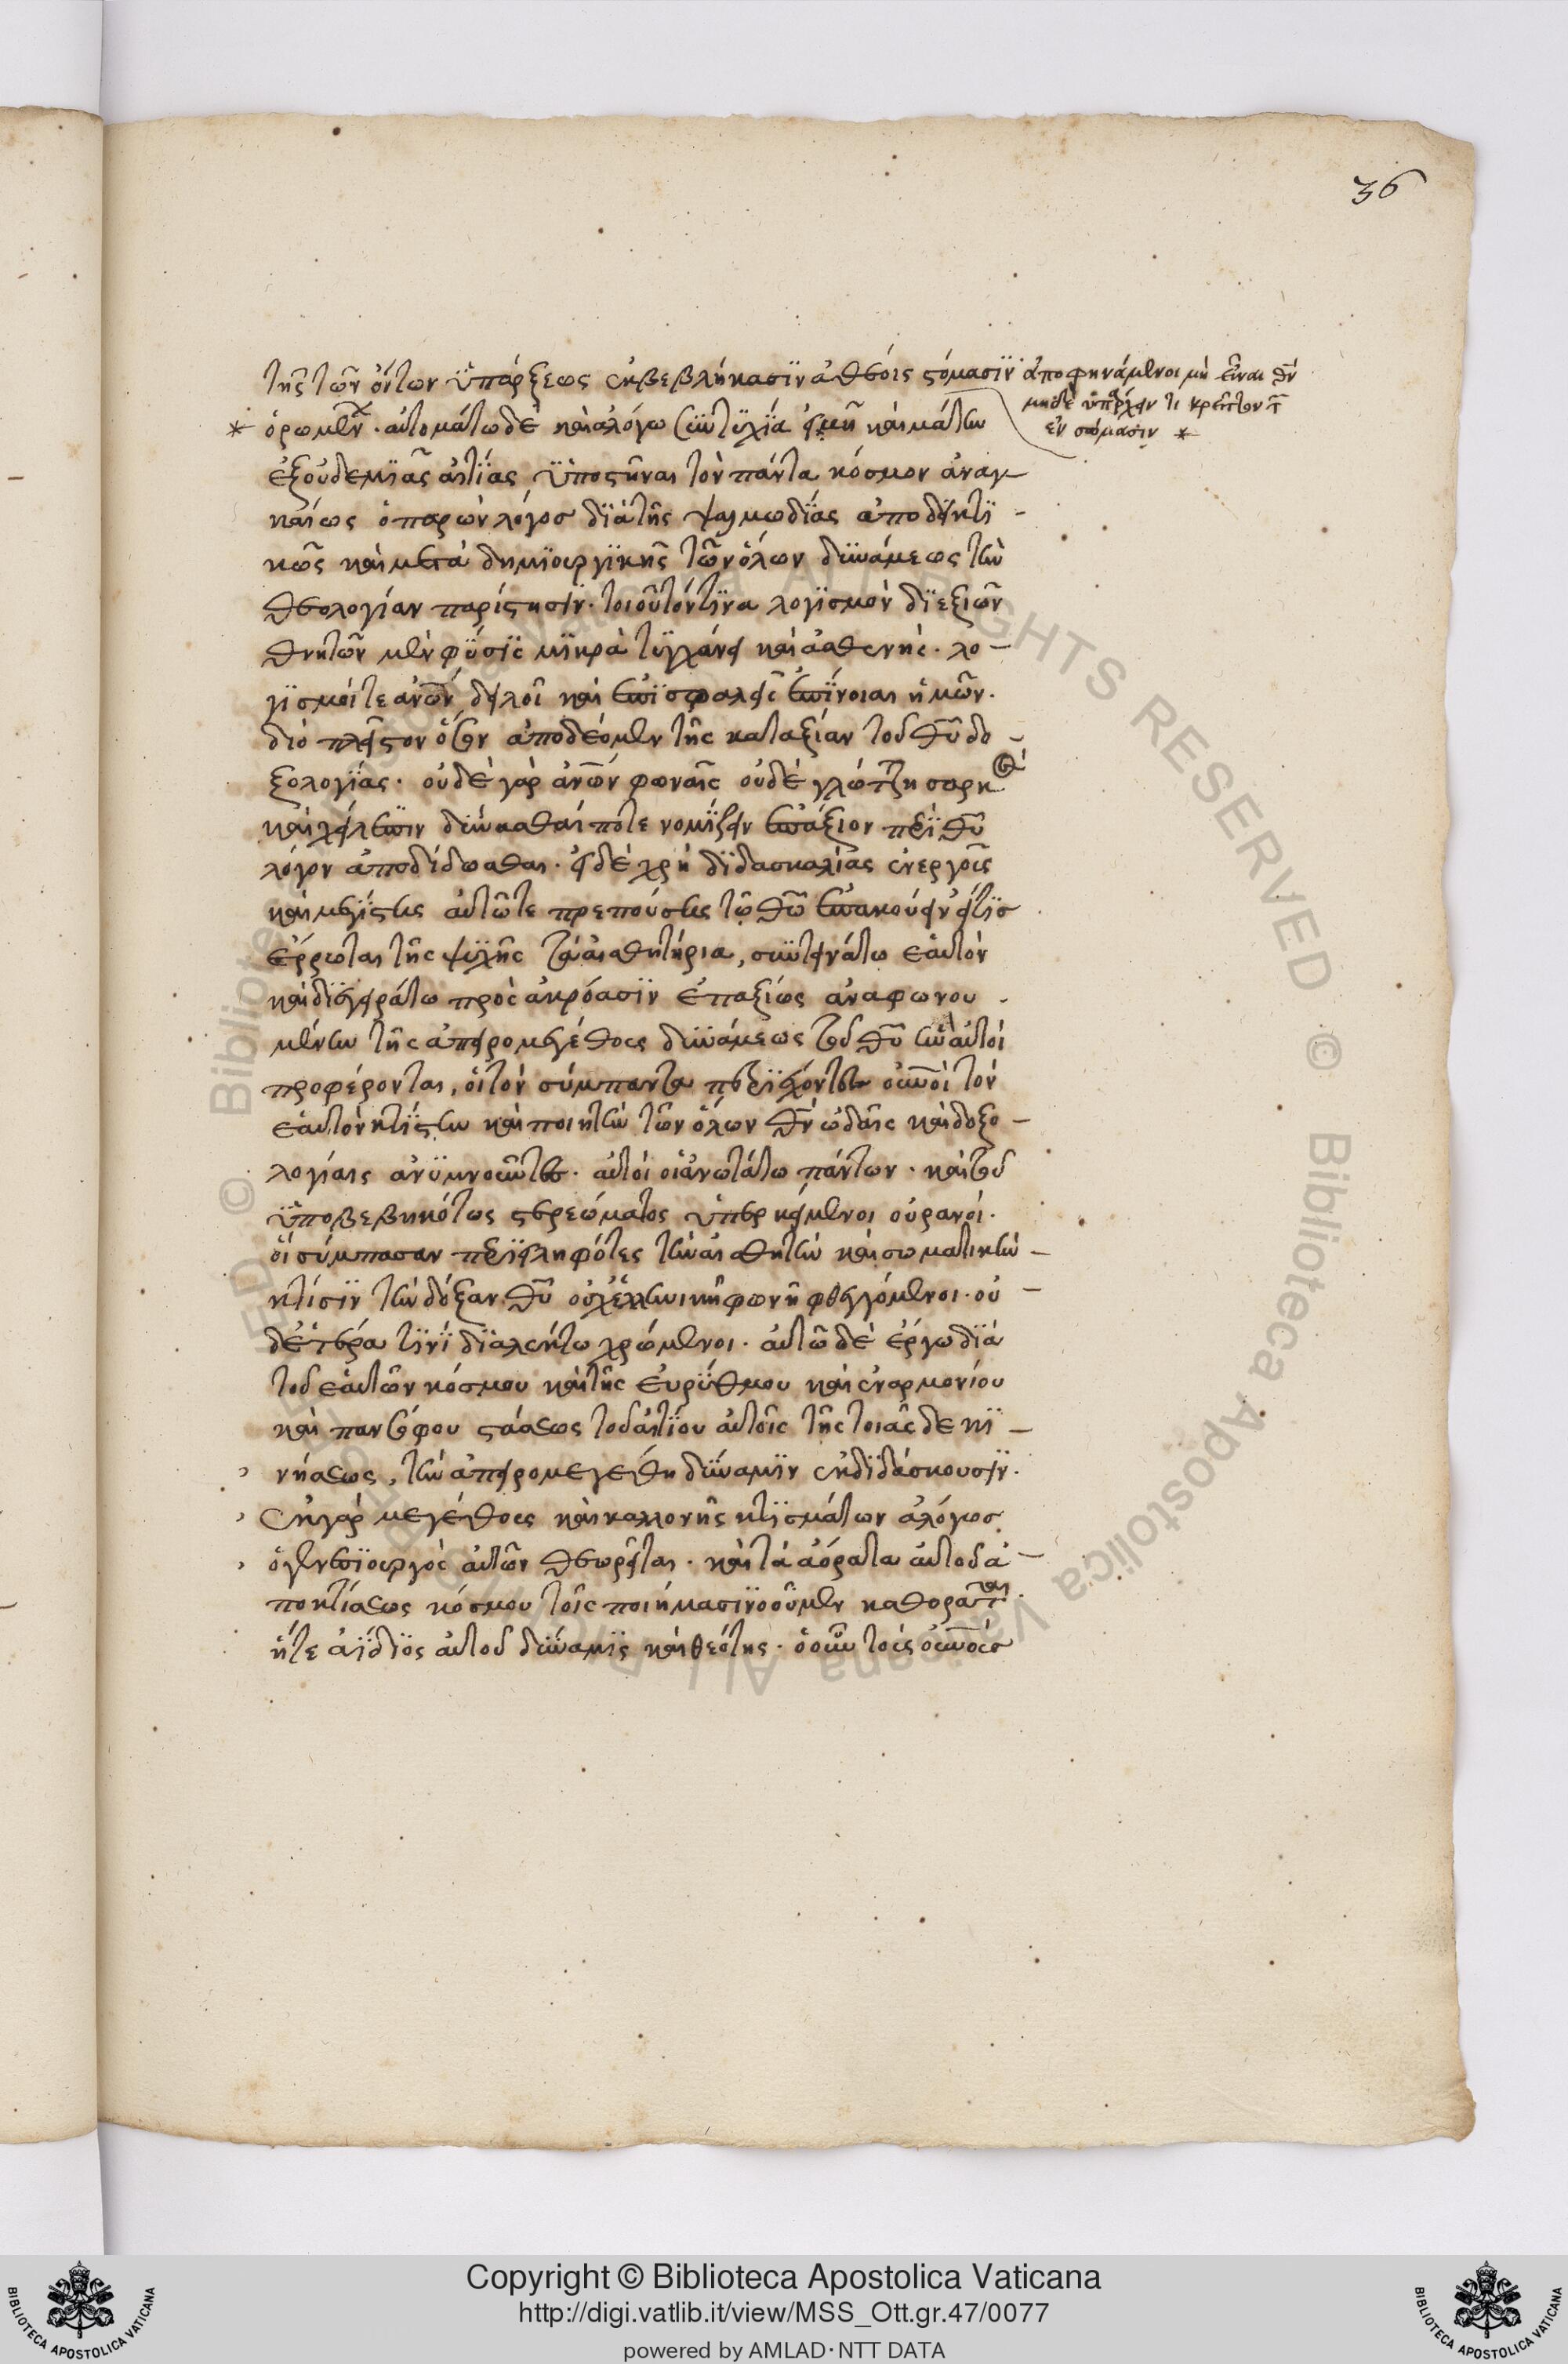 36
τῆς τῶν ὄντων ὑπάρξεως ἐκβεβλήκασιν ἀθέοις στόμασιν ἀποφηνάμενοι μὴ εἶναι θν
μηδὲ ὑπάρχειν τι κρεῖττον τ
ἐν σώμασιν *
* ὁρωμένων. αὐτομάτω δὲ καὶ ἀλόγω συντυχία εἰκῆ καὶ μάτην
ἐξ οὐδεμιᾶς αἰτίας ὑποστῆναι τὸν πάντα κόσμον ἀναγ
καίως ὁ παρὼν λόγος διὰ τῆς ψαλμωδίας ἀποδεικτι-
κῶς καὶ μετὰ δημιουργικῆς τῶν ὅλων δυνάμεως τὴν
θεολογίαν παρίστησιν. τοιοῦτόν τινα λογισμὸν διεξιὼν
θνητῶν μὲν φύσις μικρὰ τυγχάνει καὶ ἀσθενής. λο-
γισμοί τε ἀνων δειλοὶ καὶ ἐπισφαλεῖς ἐπίνοιαι ἡμῶν.
διὸ πλεῖστον ὅσον ἀποδέομεν τῆς καταξίαν τοῦ θυ δο-
ξολογίας. οὐδὲ γὰρ ἀνων φωναῖς οὐδὲ γλώττη σαρκ
καὶ χείλεσιν δύνασθαί ποτε νομίζειν ἐπάξιον περὶ θυ
λόγον ἀποδίδοσθαι. εἰ δὲ χρὴ διδασκαλίας ἐνεργοῦς
καὶ μεγίστης αὐτῶ τε πρεπούσης τῶ θω ἐπακούειν εἴ τις
ἔρρωται τῆς ψυχῆς τὰ αἰσθητήρια, συντεινάτω ἑαυτὸν
καὶ διεγειράτω πρὸς ἀκρόασιν ἐπαξίως ἀναφωνου-
μένην τῆς ἀπειρομεγέθους δυνάμεως τοῦ θυ ἣν αὐτοὶ
προφέρονται, οἱ τὸν σύμπαντα περιέχοντες οὐνοὶ τὸν
ἑαυτῶν κτίστην καὶ ποιητὴν τῶν ὅλων θν ὠδαῖς καὶ δοξο-
λογίαις ἀνυμνοῦντες. αὐτοὶ οἱ ἀνωτάτω πάντων. καὶ τοῦ
ὑποβεβηκότως στερεώματος ὑπερκείμενοι οὐρανοί.
οἱ σύμπασαν περιειληφότες τὴν αἰσθητὴν καὶ σωματικὴν-
κτίσιν τὴν δόξαν θυ οὐχ ἑλληνικῆ φωνῆ φθεγγόμενοι. οὐ-
δὲ ἑτέρα τινὶ διαλέκτω χρώμενοι. αὐτῶ δὲ ἔργω διὰ
τοῦ ἑαυτῶν κόσμου καὶ τῆς εὐρύθμου καὶ ἐναρμονίου
καὶ πανσόφου στάσεως τοῦ αἰτίου αὐτοῖς τῆς τοιᾶσδε κι-
νήσεως, τὴν ἀπειρομεγέθη δύναμιν ἐκδιδάσκουσιν.
ἐκ γὰρ μεγέθους καὶ καλλονῆς κτισμάτων ἀλόγως
ὁ γενεσιουργὸς αὐτῶν θεωρεῖται. καὶ τὰ ἀόρατα αὐτοῦ ἀ-
πο κτίσεως κόσμου τοῖς ποιήμασι νοούμεν καθορᾶται
ἥ τε ἀΐδιος αὐτοῦ δύναμις καὶ θεότης. ὁ οὖν τοὺς οὐνοὺς
Copyright © Biblioteca Apostolica Vaticana
http://digi.vatlib.it/view/MSS_Ott.gr.47/0077
powered by AMLAD·NTT DATA